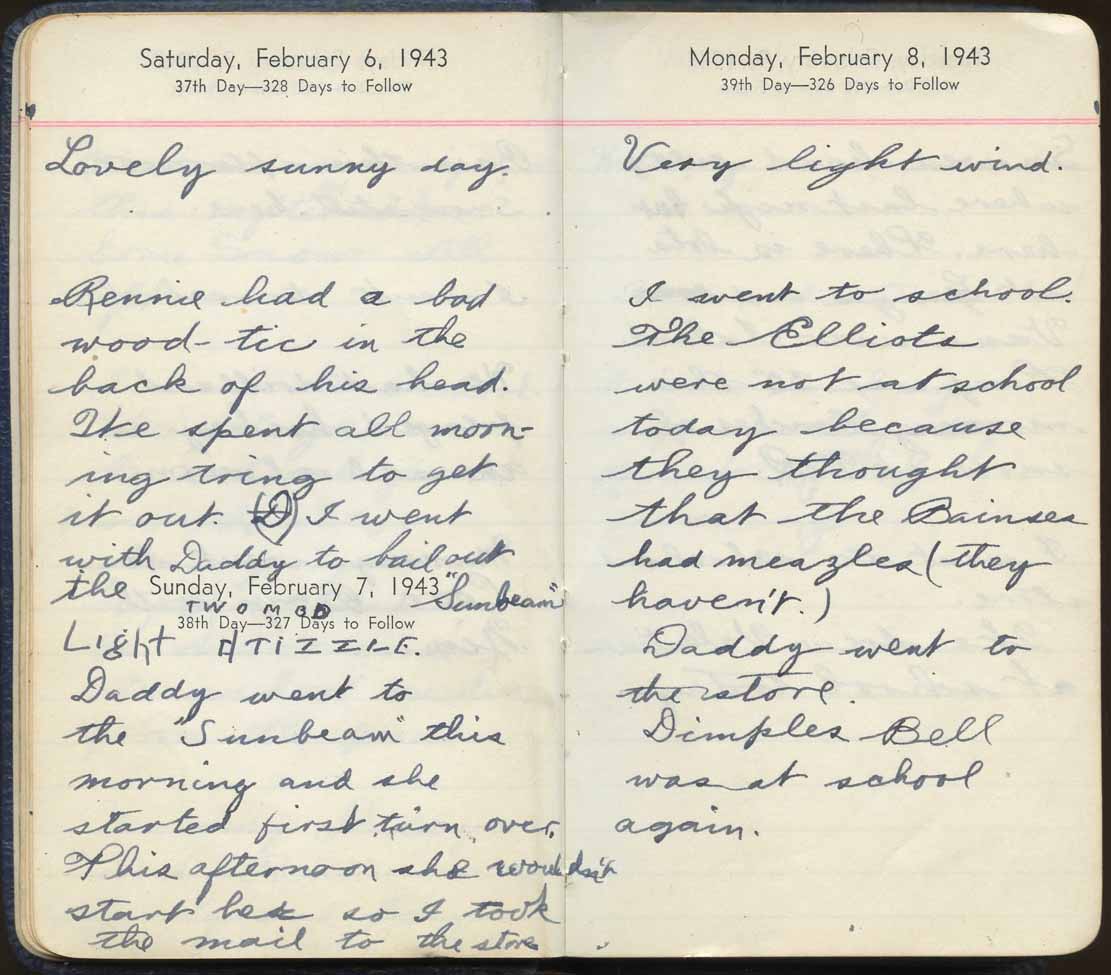 Saturday, February 6, 1943
37th Day—328 Days to Follow
Lovely sunny day.
Rennie had a bad
wood-tic in the
back of his head.
We spent all morn-
ing tring to get
it out. I went
with Daddy to bail out
the "Sunbeam"
Sunday, February 7, 1943
38th Day—327 Days to Follow
Light drizzle.
Daddy went to
the "Sunbeam" this
morning and she
started first turn over.
This afternoon she wouldn't
start so I took
the mail to the store
Monday, February 8, 1943
39th Day—326 Days to Follow
Very light wind.
I went to school.
The Elliots
were not at school
today because
they thought
that the Bainses
had meazles (they
haven't.)
Daddy went to
the store.
Dimples Bell
was at school
again.